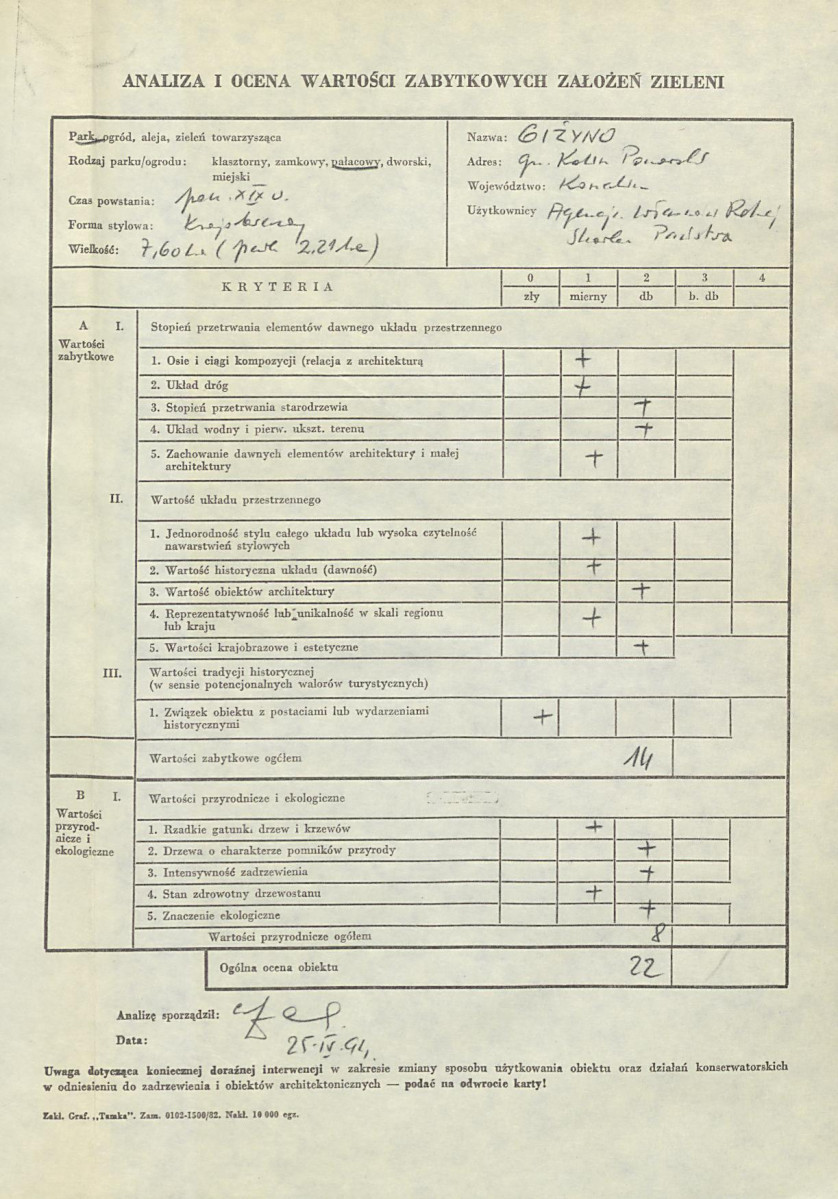 ANALIZA I OCENA WARTOŚCI ZABYTKOWYCH ZAŁOŻEŃ ZIELENI
Park, ogród, aleja, zieleń towarzysząca
Rodzaj parku/ogrodu: klasztorny, zamkowy, pałacowy, dworski,
miejski
Czas powstania: XIX w.
Forma stylowa:
Wielkość: 7,60 ha (park 2,21 ha)
Nazwa: GIŻYNO
Adres: gm. Kalisz Pomorski
Województwo:
Użytkownicy Agencja Własności Rolnej
Skarbu Państwa
KRYTERIA
0 1 2 3 4
zły mierny db b. db
A I. Stopień przetrwania elementów dawnego układu przestrzennego
Wartości
zabytkowe
1. Osie i ciągi kompozycji (relacja z architekturą +
2. Układ dróg +
3. Stopień przetrwania starodrzewia +
4. Układ wodny i pierw. ukszt. terenu +
5. Zachowanie dawnych elementów architektury i małej
architektury +
II. Wartość układu przestrzennego
1. Jednorodność stylu całego układu lub wysoka czytelność
nawarstwień stylowych +
2. Wartość historyczna układu (dawność) +
3. Wartość obiektów architektury +
4. Reprezentatywność lub unikalność w skali regionu
lub kraju +
5. Wartości krajobrazowe i estetyczne +
III. Wartości tradycji historycznej
(w sensie potencjonalnych walorów turystycznych)
1. Związek obiektu z postaciami lub wydarzeniami
historycznymi +
Wartości zabytkowe ogółem 14
B I. Wartości przyrodnicze i ekologiczne
Wartości
przyrod-
nicze i
ekologiczne
1. Rzadkie gatunki drzew i krzewów +
2. Drzewa o charakterze pomników przyrody +
3. Intensywność zadrzewienia +
4. Stan zdrowotny drzewostanu +
5. Znaczenie ekologiczne +
Wartości przyrodnicze ogółem 8
Ogólna ocena obiektu 22
Analizę sporządził:
Data: 25.IV.94,
Uwaga dotycząca koniecznej doraźnej interwencji w zakresie zmiany sposobu użytkowania obiektu oraz działań konserwatorskich
w odniesieniu do zadrzewienia i obiektów architektonicznych — podać na odwrocie karty!
Zakł. Graf. „Tamka". Zam. 0102-1500/82. Nakł. 10 000 egz.